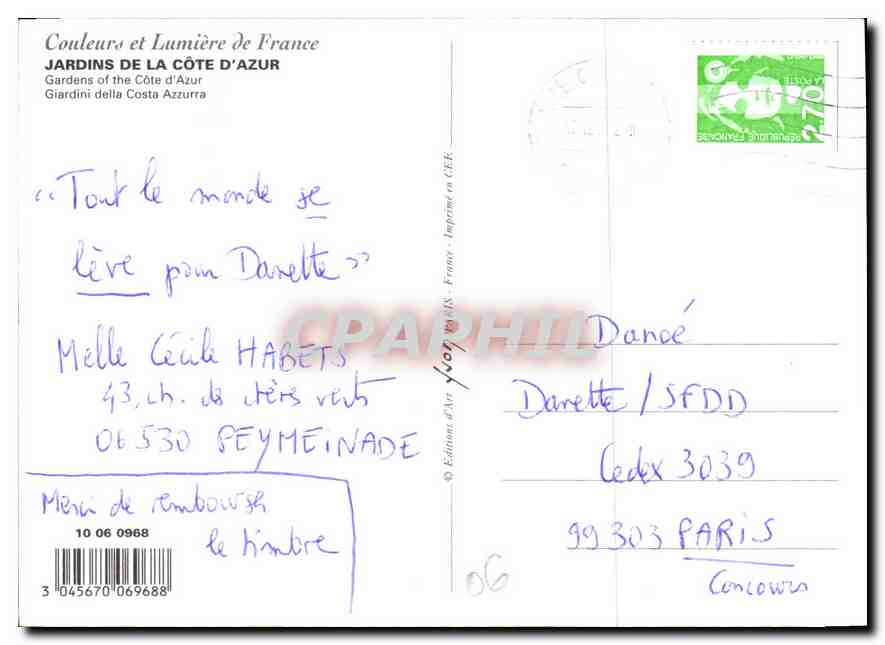 Couleurs et Lumière de France
JARDINS DE LA CÔTE D'AZUR
Gardens of the Côte d'Azur
Giardini della Costa Azzurra
« Tout le monde se
lève pour Danette »
Melle Cécile HABETS
43, ch. des verts
06530 PEYMEINADE
Merci de rembourser
le timbre
10 06 0968
3 045670 069688
© Editions d'Art YVON PARIS - France - Imprimé en CEE
CPAPHIL
2,70
LA POSTE
RÉPUBLIQUE FRANÇAISE
Danoé
Danette / SFDD
Cedex 3039
99303 PARIS
Concours
06